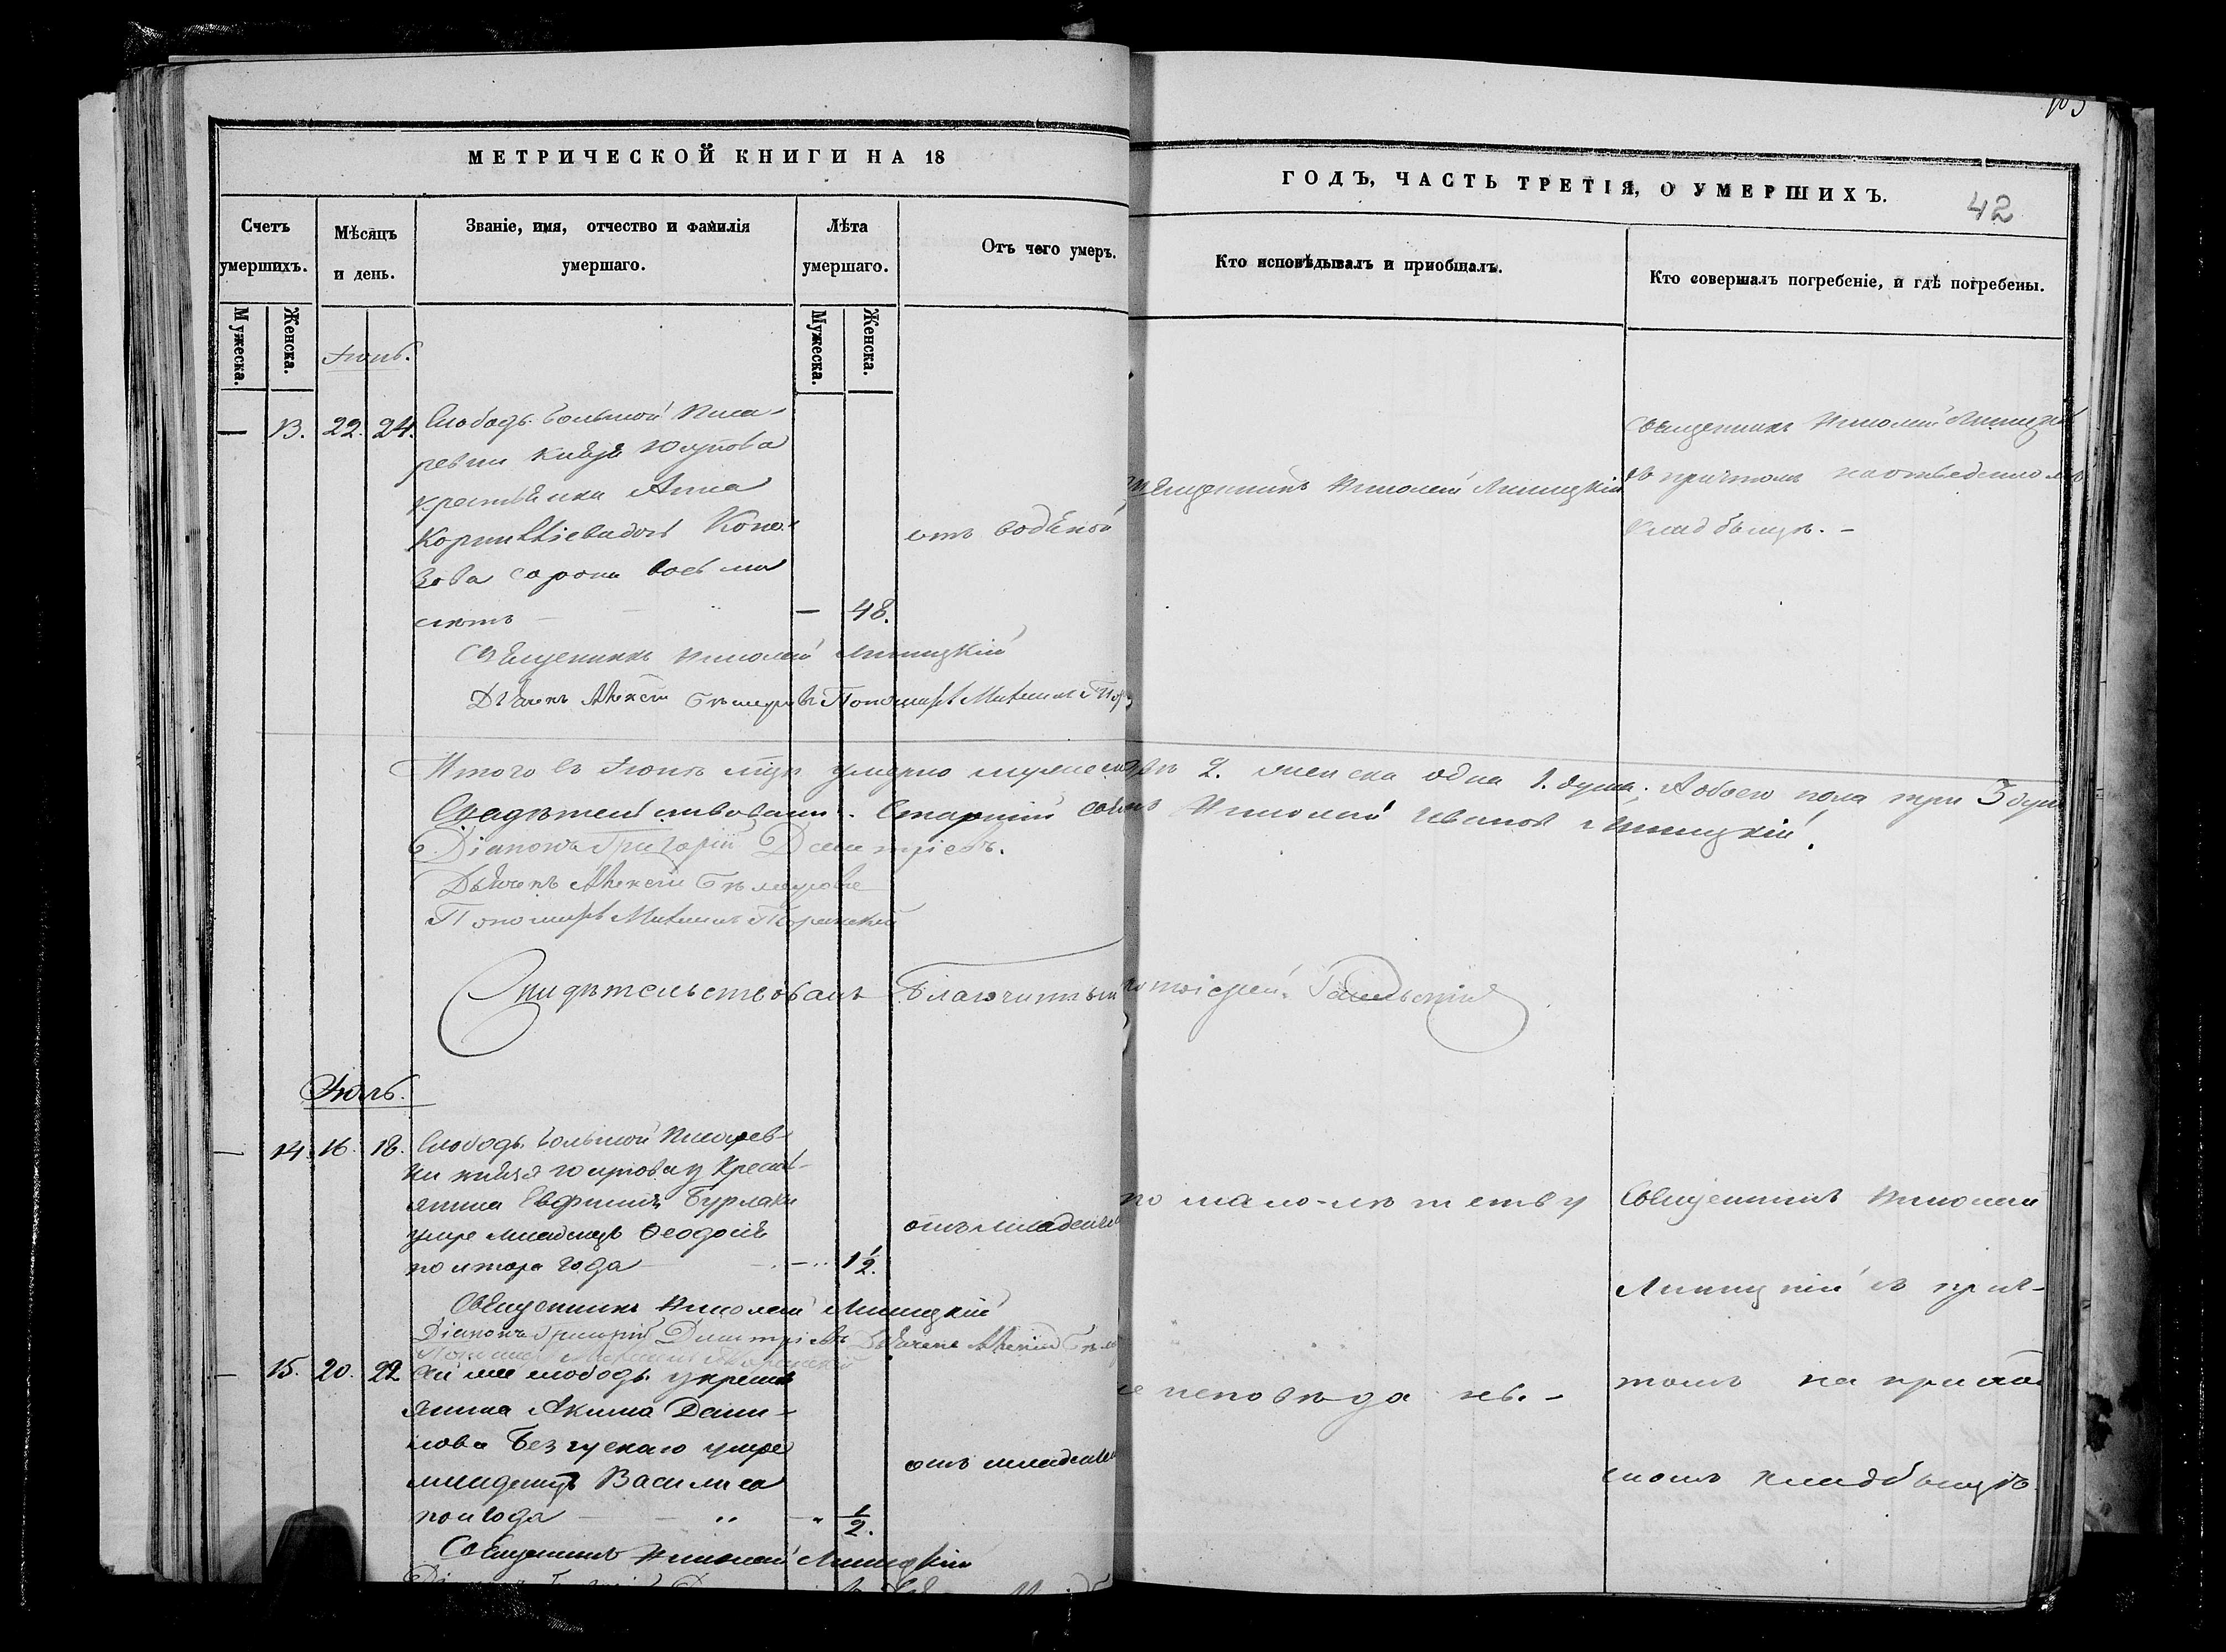 МЕТРИЧЕСКОЙ КНИГИ НА 18
ГОДЪ, ЧАСТЬ ТРЕТІЯ, О УМЕРШИХЪ.
42
Счетъ умершихъ.
Мужеска.
Женска.
Мѣсяцъ и день.
Званіе, имя, отчество и фамилія
умершаго.
Лѣта умершаго.
Мужеска.
Женска.
Отъ чего умеръ.
Кто исповѣдывалъ и пріобщалъ.
Кто совершалъ погребеніе, и гдѣ погребены.
Іюнь.
— 13. 22. 24. Слободы Большой Писа-
ревки князя Юсупова
крестьянка Анна
Корниліева дочь
сорока восьми
лѣтъ — 48.
отъ водяной
Священникъ Николай Линицкій
Священникъ Николай
съ причтомъ на отведенномъ
кладбищѣ. -
Священникъ Николай Линицкій
Дьячекъ Алексѣй Пономарь Михаилъ
Итого въ Іюнѣ умерло мужеска 2. женска одна 1. душа. А обоего пола три 3 душ
Старшій Николай Ивановъ Линицкій.
Діаконъ Григорій Димитріевъ.
Дьячекъ Алексѣй
Пономарь Михаилъ
Свидѣтельствовалъ Благочинный
Іюль.
— 14. 16. 18. Слободы Большой Писарев-
ки князя Юсупова у крестья-
нина Евфимія Бурлаки
умре младенецъ Ѳеодосія
полтора года — 1½.
отъ младенч
по мало-лѣтству
Священникъ Николай
Линицкій съ прич-
томъ на приход
скомъ кладбищѣ
Священникъ Николай Линицкій
Діаконъ Григорій Димитріевъ Дьячекъ Алексѣй
Пономарь Михаилъ
— 15. 20. 22 слободы у крестья
нина Акима Дани-
лова умре
младенецъ Василиса
пол года — ½.
отъ младенч
не исповѣданъ. -
Священникъ Николай Линицкій